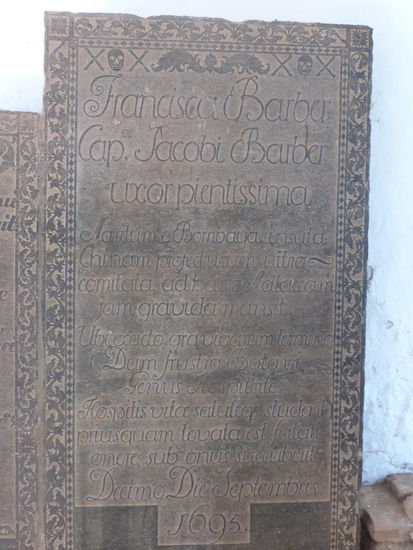 Francisca Barber
Cap. toi Jacobi Barber
uxor pientissima
Maritum e Bombaya insula
Chinam profecturum ultra
comitata, ad hanc Malaccam
jam gravida mansit
Ubi exacto gravidarum termino
Dum frustra Batavi
Genius Hospitati
Hospitis vita saluti que student
priusquam levata est fatali
onere sub onus sucubuit
Decimo Die Septembris
1695.